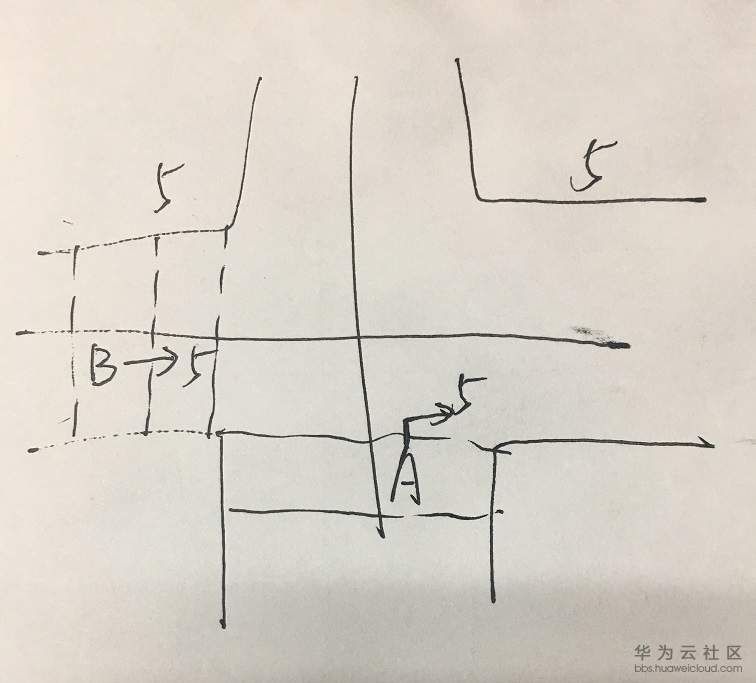 5
5
B → 5
5
A
华为云社区
bbs.huaweicloud.com